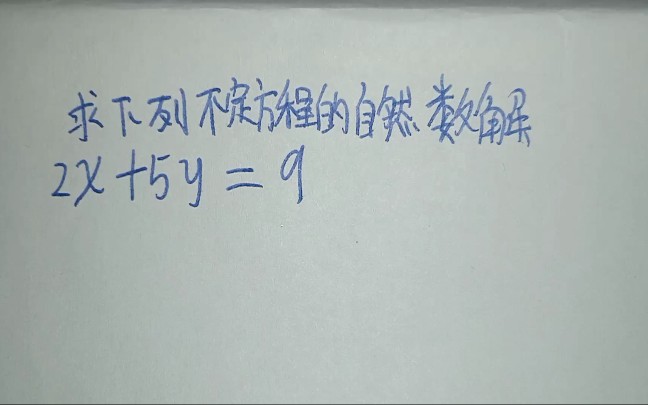 求下列不定方程的自然数解
2x+5y=9